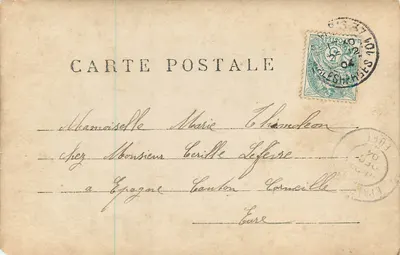 CARTE POSTALE
Mamoiselle Marie Thimoleon
chez Monsieur Cirille Lefevre
a Epagne Canton Corneille
Eure